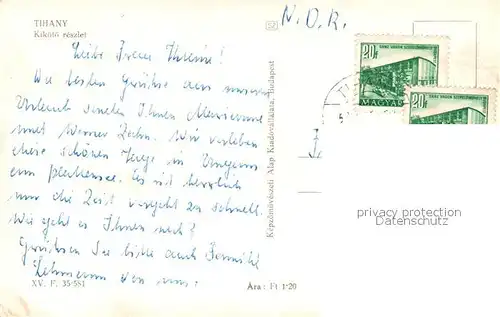 TIHANY
Kikötő részlet
N. D. R.
Liebe Frau Thieme!
Die besten Grüße aus unserem
Urlaub senden Ihnen Marianne
und Werner Zehn. Wir verleben
diese schönen Tage in Ungarn
am Plattensee. Es ist herrlich
nur die Zeit vergeht zu schnell.
Wie geht es Ihnen noch?
Grüßen Sie bitte auch Familie
Lehmann von uns!
XV. F. 35/581
Ára: Ft 1·20
Képzőművészeti Alap Kiadóvállalata, Budapest
20 f
MAGYAR
20 f
privacy protection
Datenschutz